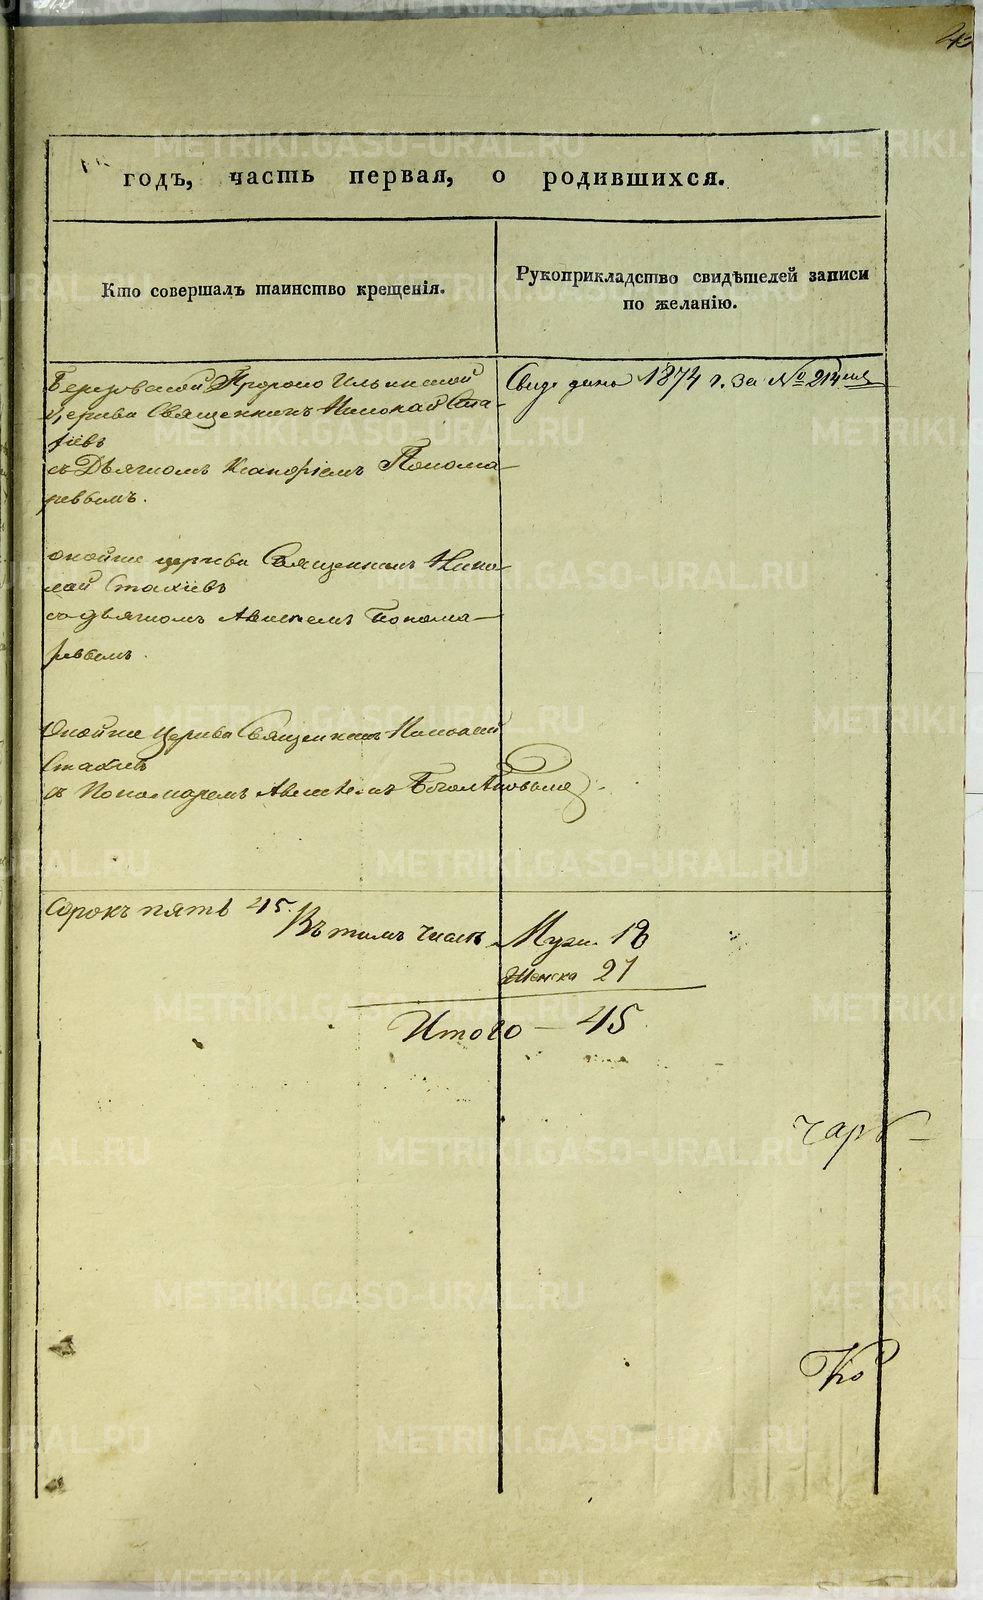 годъ, часть первая, о родившихся.
Кто совершалъ таинство крещенія.
Рукоприкладство свидѣтелей записи
по желанію.
Березовской Пророко Ильинской
Церкви Священникъ Николай Ста-
хіевъ
съ Дьячкомъ Понома-
ревымъ.
Свид. дано 1874 г. За № 214
оной же церкви Священникъ Нико-
лай Стахіевъ
съ дьячкомъ Понома-
ревымъ.
Оной же церкви Священникъ Николай
Стахіевъ
съ Пономаремъ
Сорокъ пять 45.
Въ томъ числѣ Муж. 18
Женска 27
Итого — 45
METRIKI.GASO-URAL.RU